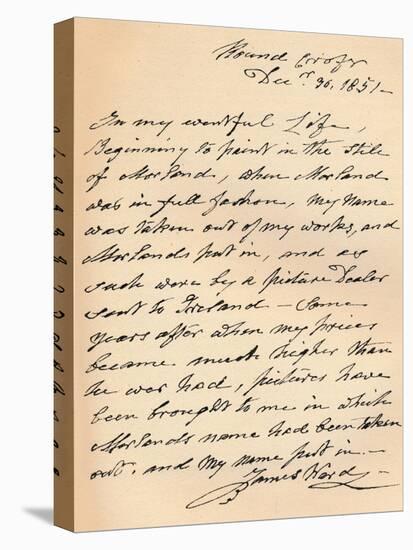 Round Croft
Decr. 30. 1851-
In my eventful Life,
Beginning to paint in the Stile
of Morland, when Morland
was in full fashon, My Name
was taken out of my works, and
Morlands put in, and as
such were by a picture Dealer
sent to Ireland - Some
years after when my prices
became much higher than
he ever had, pictures have
been brought to me in which
Morlands name had been taken
out. and My name put in. -
James Ward -